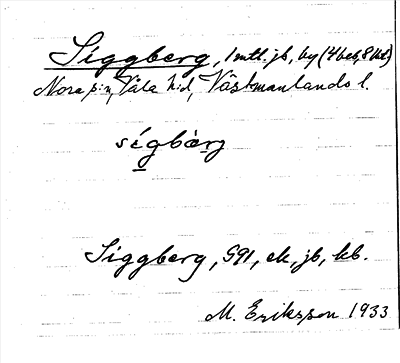 Siggberg, 1 mtl. jb, by (4 beb, 8 lht.)
Nora sn, Våla hd, Västmanlands l.
ségbàrg
Siggberg, GGA, ek, jb, kb.
M. Eriksson 1933